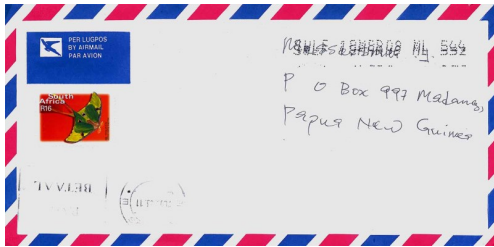 PER LUGPOS
BY AIRMAIL
PAR AVION
South
Africa
R16
P O Box 997 Madang,
Papua New Guinea
BETAAL